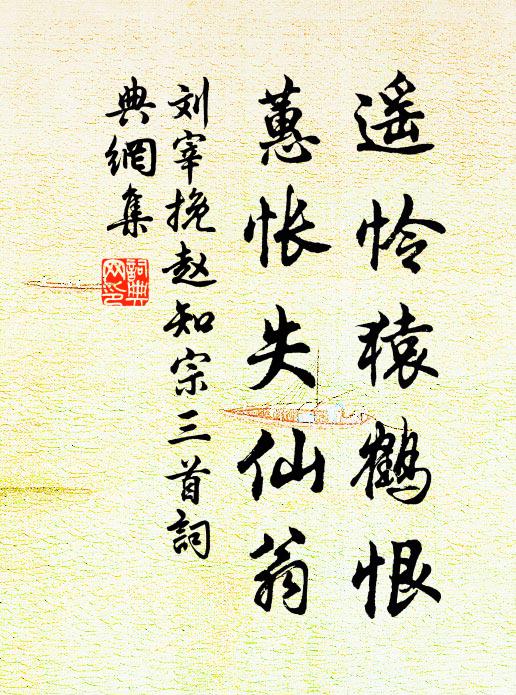 遥怜猿鹤恨
蕙怅失仙翁
刘宰挽赵知宗三首詞
典網集
詞典
网印